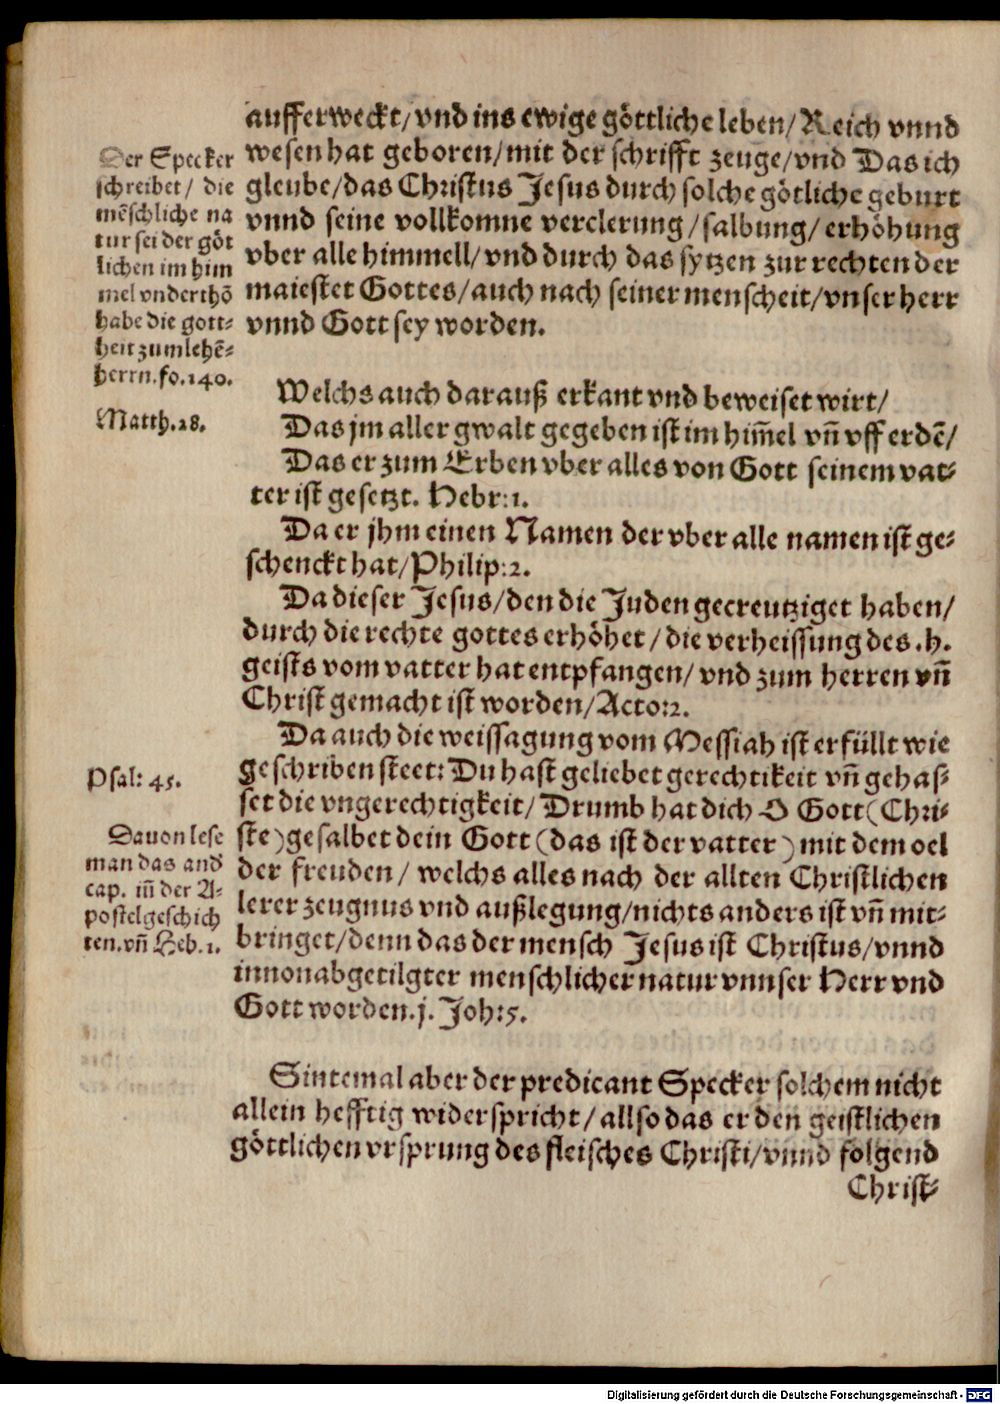 aufferweckt/vnd ins ewige göttliche leben/Reich vnnd
wesen hat geboren/mit der schrifft zeuge/vnd Das ich
gleube/das Christus Jesus durch solche götliche geburt
vnnd seine vollkomne verclerung/salbung/erhöhung
vber alle himmell/vnd durch das sytzen zur rechten der
maiestet Gottes/auch nach seiner menscheit/vnser herr
vnnd Gott sey worden.
Der Specker
schreibet/ die
mẽschliche na
tur sei der göt
lichen im him
mel vnderthõ
habe die gott⸗
heit zum lehẽ⸗
herrn.fo.140.
Welchs auch darauß erkant vnd beweiset wirt/
Matth.28.
Das jm aller gwalt gegeben ist im him̃el vñ vff erdẽ/
Das er zum Erben vber alles von Gott seinem vat⸗
ter ist gesetzt. Hebr:1.
Da er jhm einen Namen der vber alle namen ist ge⸗
schenckt hat/Philip:2.
Da dieser Jesus/den die Juden gecreutziget haben/
durch die rechte gottes erhöhet/die verheissung des .h.
geists vom vatter hat entpfangen/ vnd zum herren vñ
Christ gemacht ist worden/Acto:2.
Da auch die weissagung vom Messiah ist erfüllt wie
Psal: 45.
geschriben steet: Du hast geliebet gerechtikeit vñ gehas⸗
set die vngerechtigkeit/ Drumb hat dich O Gott (Chri⸗
ste) gesalbet dein Gott (das ist der vatter) mit dem oel
der freuden/ welchs alles nach der allten Christlichen
lerer zeugnus vnd außlegung/nichts anders ist vñ mit⸗
bringet/denn das der mensch Jesus ist Christus/vnnd
inn onabgetilgter menschlicher natur vnnser Herr vnd
Gott worden.j. Joh:5.
Dauon lese
man das and
cap. iñ der A⸗
postelgeschich
ten.vñ Heb.1.
Sintemal aber der predicant Specker solchem nicht
allein hefftig widerspricht/allso das er den geistlichen
göttlichen vrsprung des fleisches Christi/vnnd folgend
Christ⸗
Digitalisierung gefördert durch die Deutsche Forschungsgemeinschaft - DFG